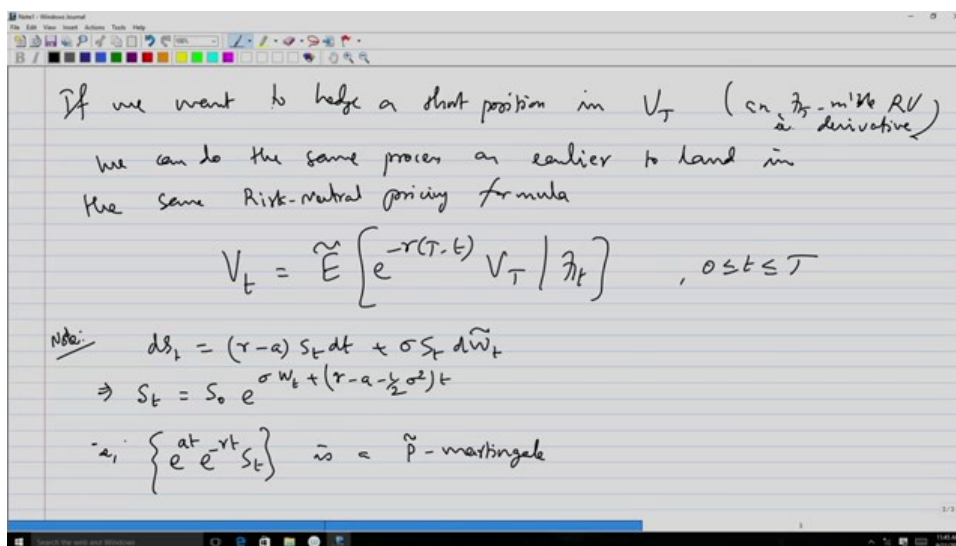 Note1 - Windows Journal
File Edit View Insert Actions Tools Help
B I
If we want to hedge a short position in V_T (an ℱ_T-m'ble RV
is a derivative)
we can do the same proces as earlier to land in
the same Risk-neutral pricing formula
V_t = Ẽ [ e^{-r(T-t)} V_T | ℱ_t ] , 0 ≤ t ≤ T
Note: dS_t = (r-a) S_t dt + σ S_t dW̃_t
⇒ S_t = S_0 e^{σ W_t + (r-a-½σ²)t}
{ e^{at} e^{-rt} S_t } is a P̃-martingale
3/3
Search the web and Windows
11:45 AM